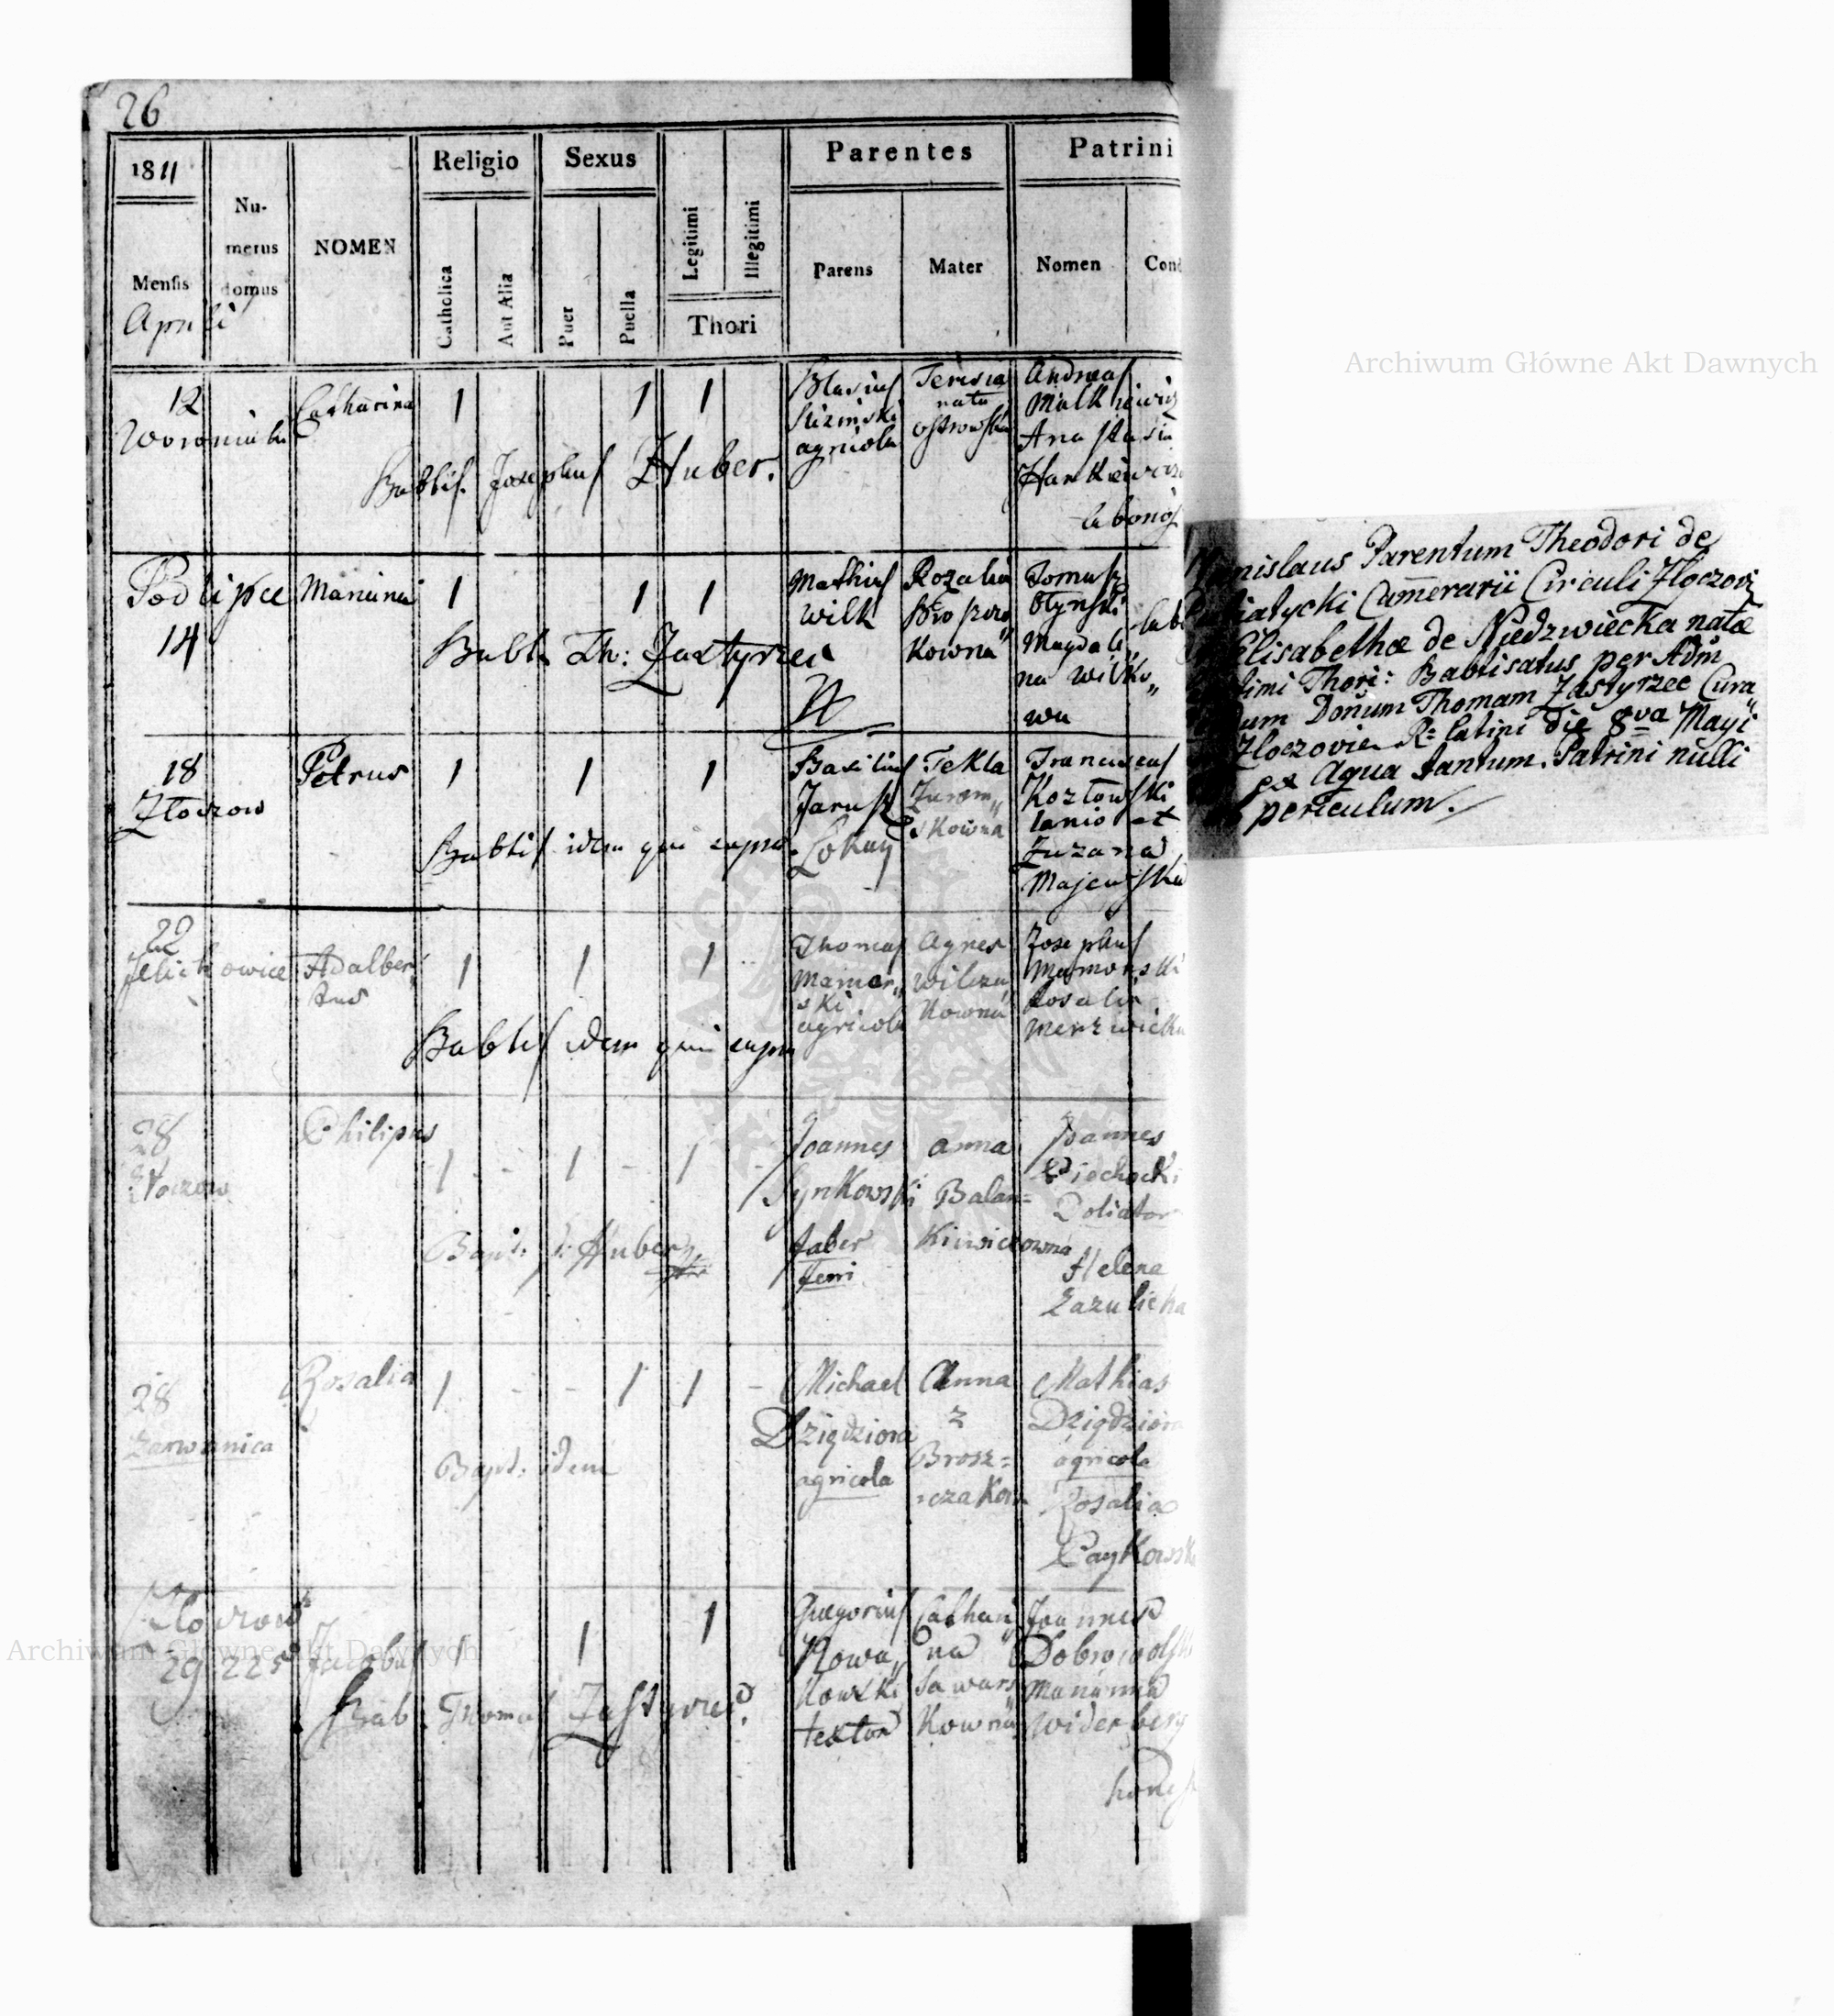 26
1811
Mensis
Aprili
Nu-
merus
domus
NOMEN
Religio
Catholica
Aut Alia
Sexus
Puer
Puella
Legitimi
Illegitimi
Thori
Parentes
Parens
Mater
Patrini
Nomen
Cond
12
Catharina
1
1
1
Blasius
agricola
Teresia
nata
Ostrowska
Andreas
Malkiewicz
Anastasia
Hankiewicz
Babtis. Josephus Huber.
Podlipce
14
Marianna
1
1
1
Mathias
Wilk
Rozalia
kowna
Tomasz
Olynski
Magdale„
na Wilko„
wa
Babt. Th: Zastyrzec
18
Złoczow
Petrus
1
1
1
Basilius
Jarusz
Lokay
Tekla
Zurom„
skowna
Franciscus
Kozłowski
lanio et
Zuzana
Majewska
Babtis idem qui supra
22
Jelichowice
Adalber„
tus
1
1
1
Thomas
Mamor„
ski
agricola
Agnes
Wilczu„
kowna
Josephus
Mamorski
Rosalia
Babtis idem qui supra
28
Złoczow
Philipus
1
1
1
Joannes
Synkowski
faber
ferri
Anna
Balan=
kiewiczowna
Joannes
Piechocki
Doliator
Helena
Zazulicka
Bapt: J: Huber
28
Zarwanica
Rosalia
1
1
1
Michael
Dzigdziora
agricola
Anna
z
Brosz=
czakow
Mathias
Dzigdziora
agricola
Rosalia
Caykowsk
Bapt: idem
Złoczow
29 225
Jacobus
1
1
1
Gregorius
Nowa„
kowski
textor
Cathari„
na
Sawars„
kowna
Joannes
Dobrowolsk
Marianna
Widerberg
Bab. Thomas Zastyrzec
nislaus Parentum Theodori de
iatycki Camerarii Circuli Zloczovi
Elisabethæ de Niedzwiecka natæ
timi Thori: Babtisatus per Adm
um Donum Thomam Zastyrzec Cura„
Zloczovien R: Latini die 8va Mayi
ex Aqua tantum. Patrini nulli
periculum.
Archiwum Główne Akt Dawnych
Archiwum Główne Akt Dawnych